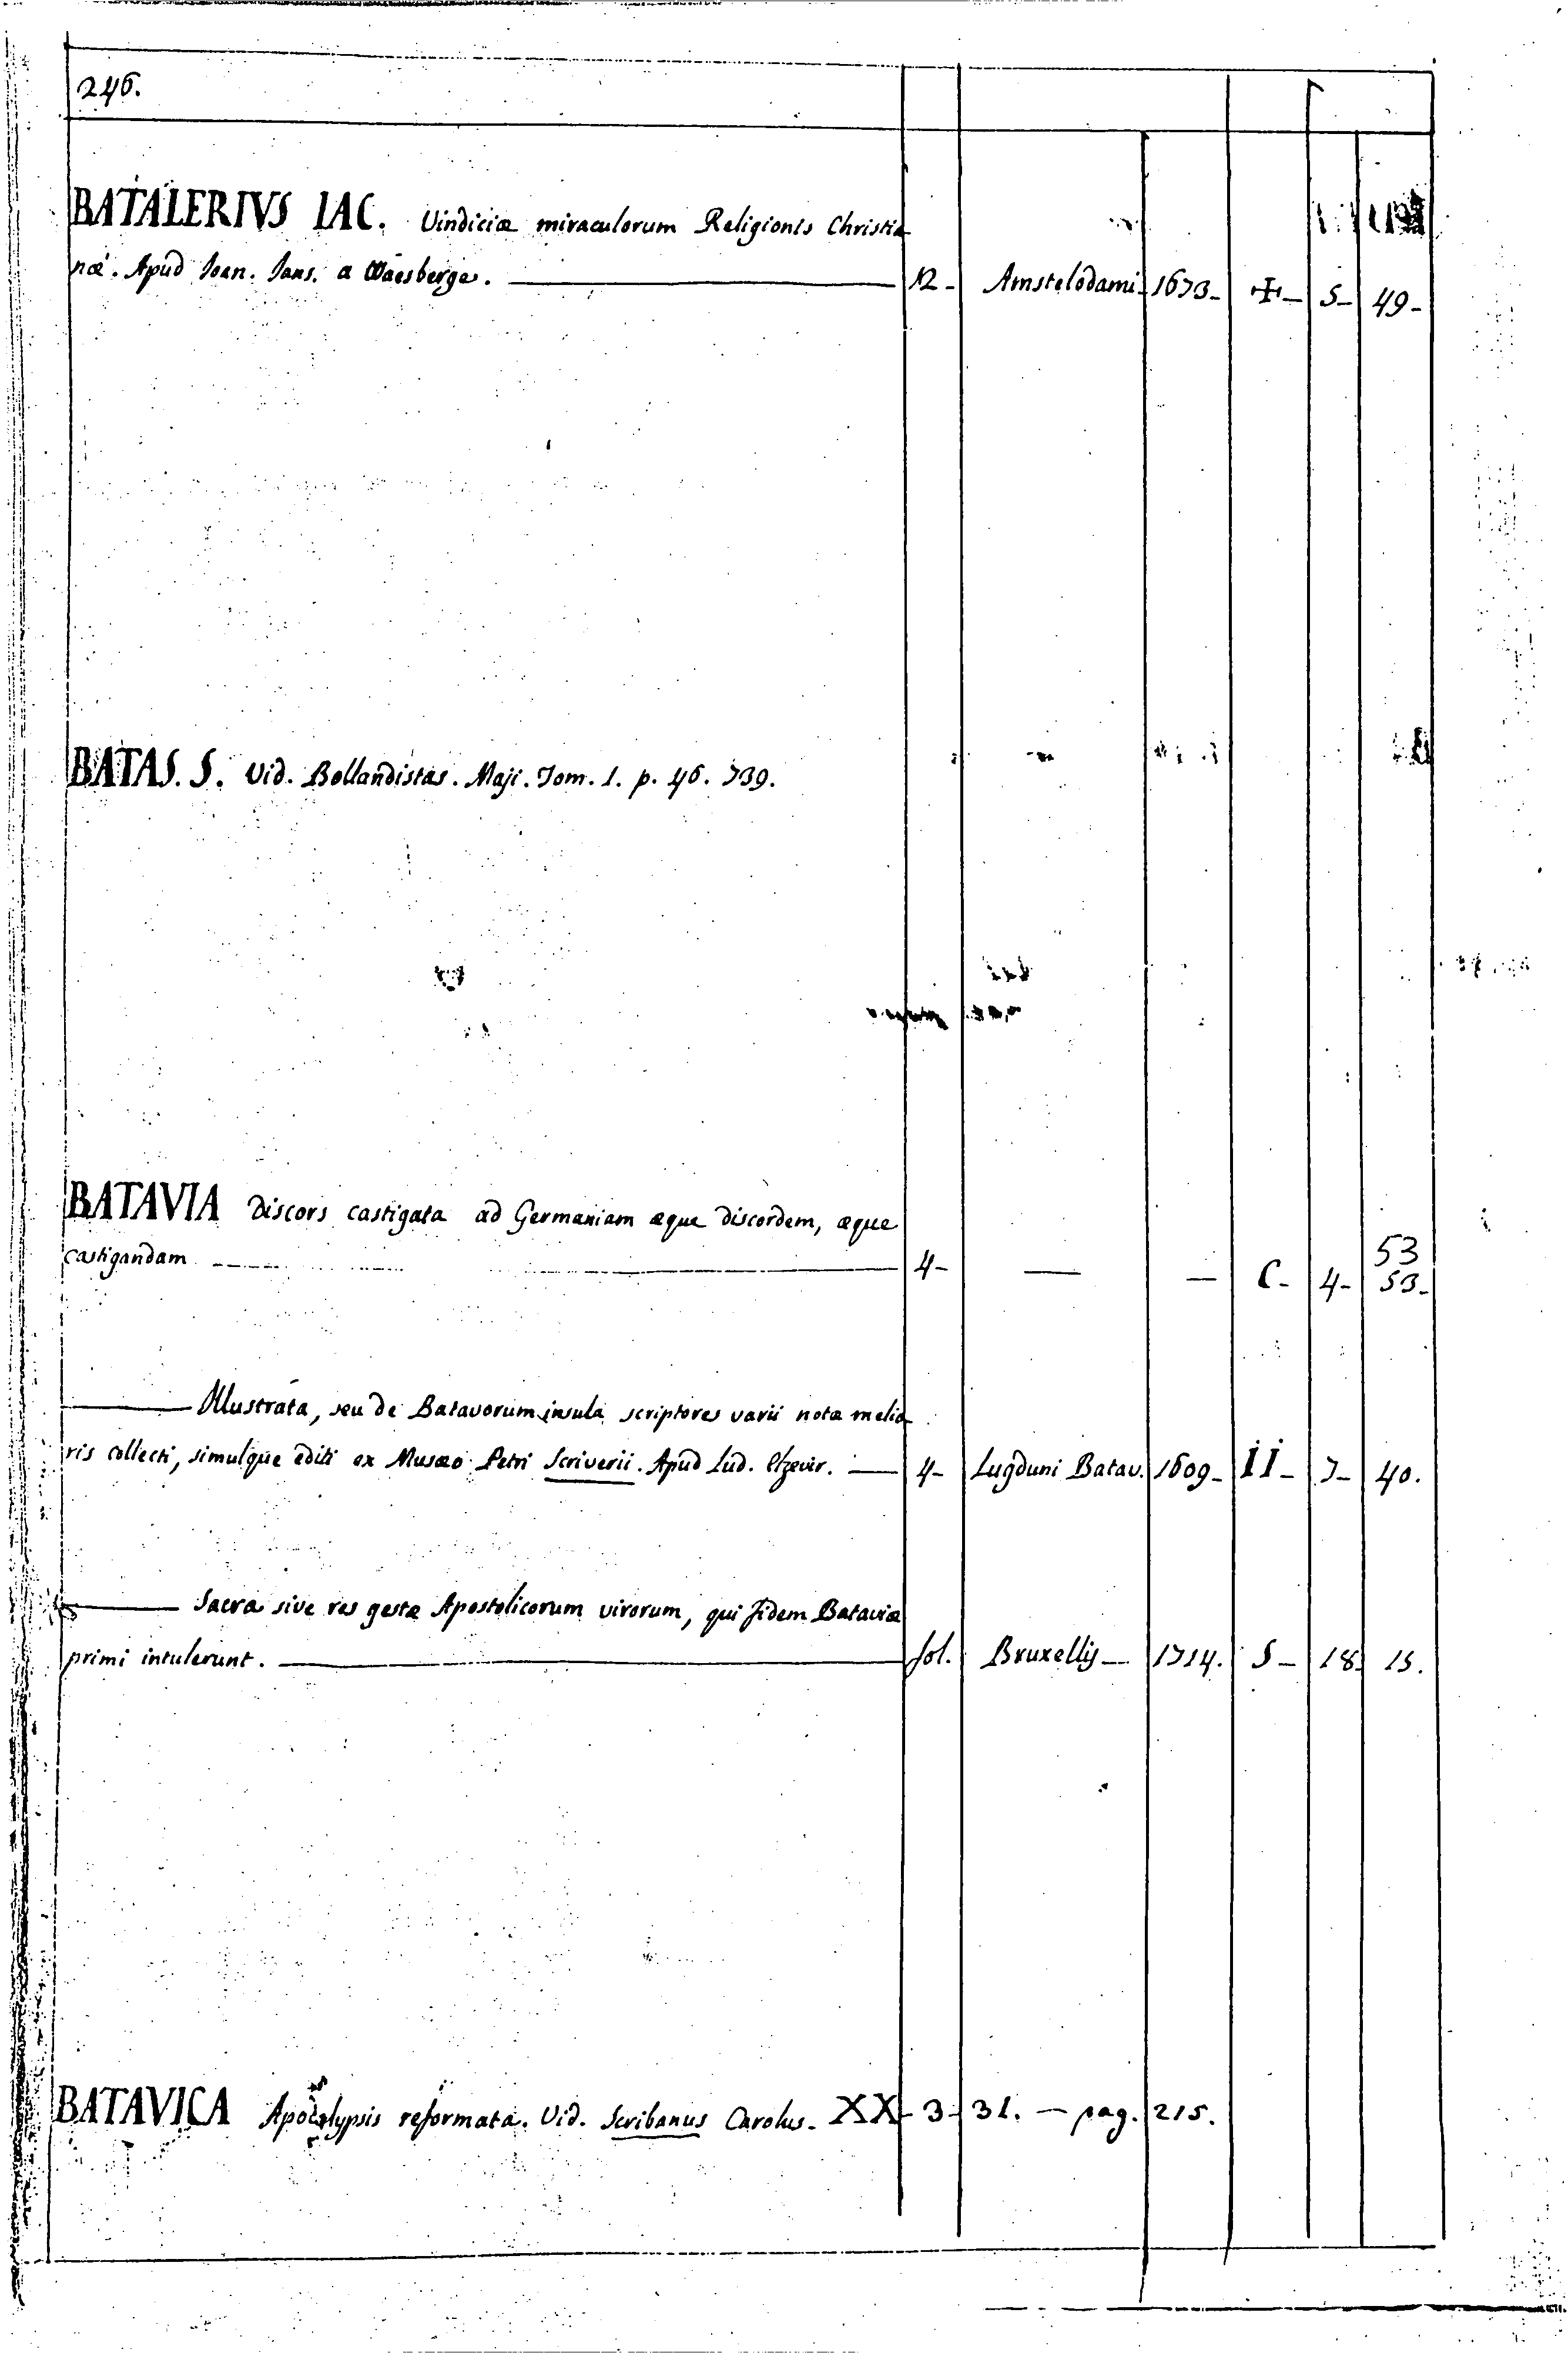 246.
BATALERIVS IAC. Vindiciæ miraculorum Religionis Christia-
næ. Apud Ioan. Ians. a Waesberge. — 12 - Amstelodami - 1673 - ✠ - 5 - 49 -
BATAS. S. Vid. Bollandistas. Maji. Tom. 1. p. 46. 739.
BATAVIA discors castigata ad Germaniam æque discordem, æque
53
castigandam — 4 - — — C - 4 - 53 -
— Illustrata, seu de Batavorum insula scriptores varii notæ melio-
ris collecti, simulque editi ex Musæo Petri Scriverii. Apud Lud. Elzevir. — 4 - Lugduni Batav. 1609 - II - 7 - 40.
— Sacra sive res gestæ Apostolicorum virorum, qui fidem Bataviæ
primi intulerunt. — fol. Bruxellis — 1714. S - 18. 15.
BATAVICA Apocalypsis reformata. Vid. Scribanus Carolus. XX - 3 - 31. — pag. 215.